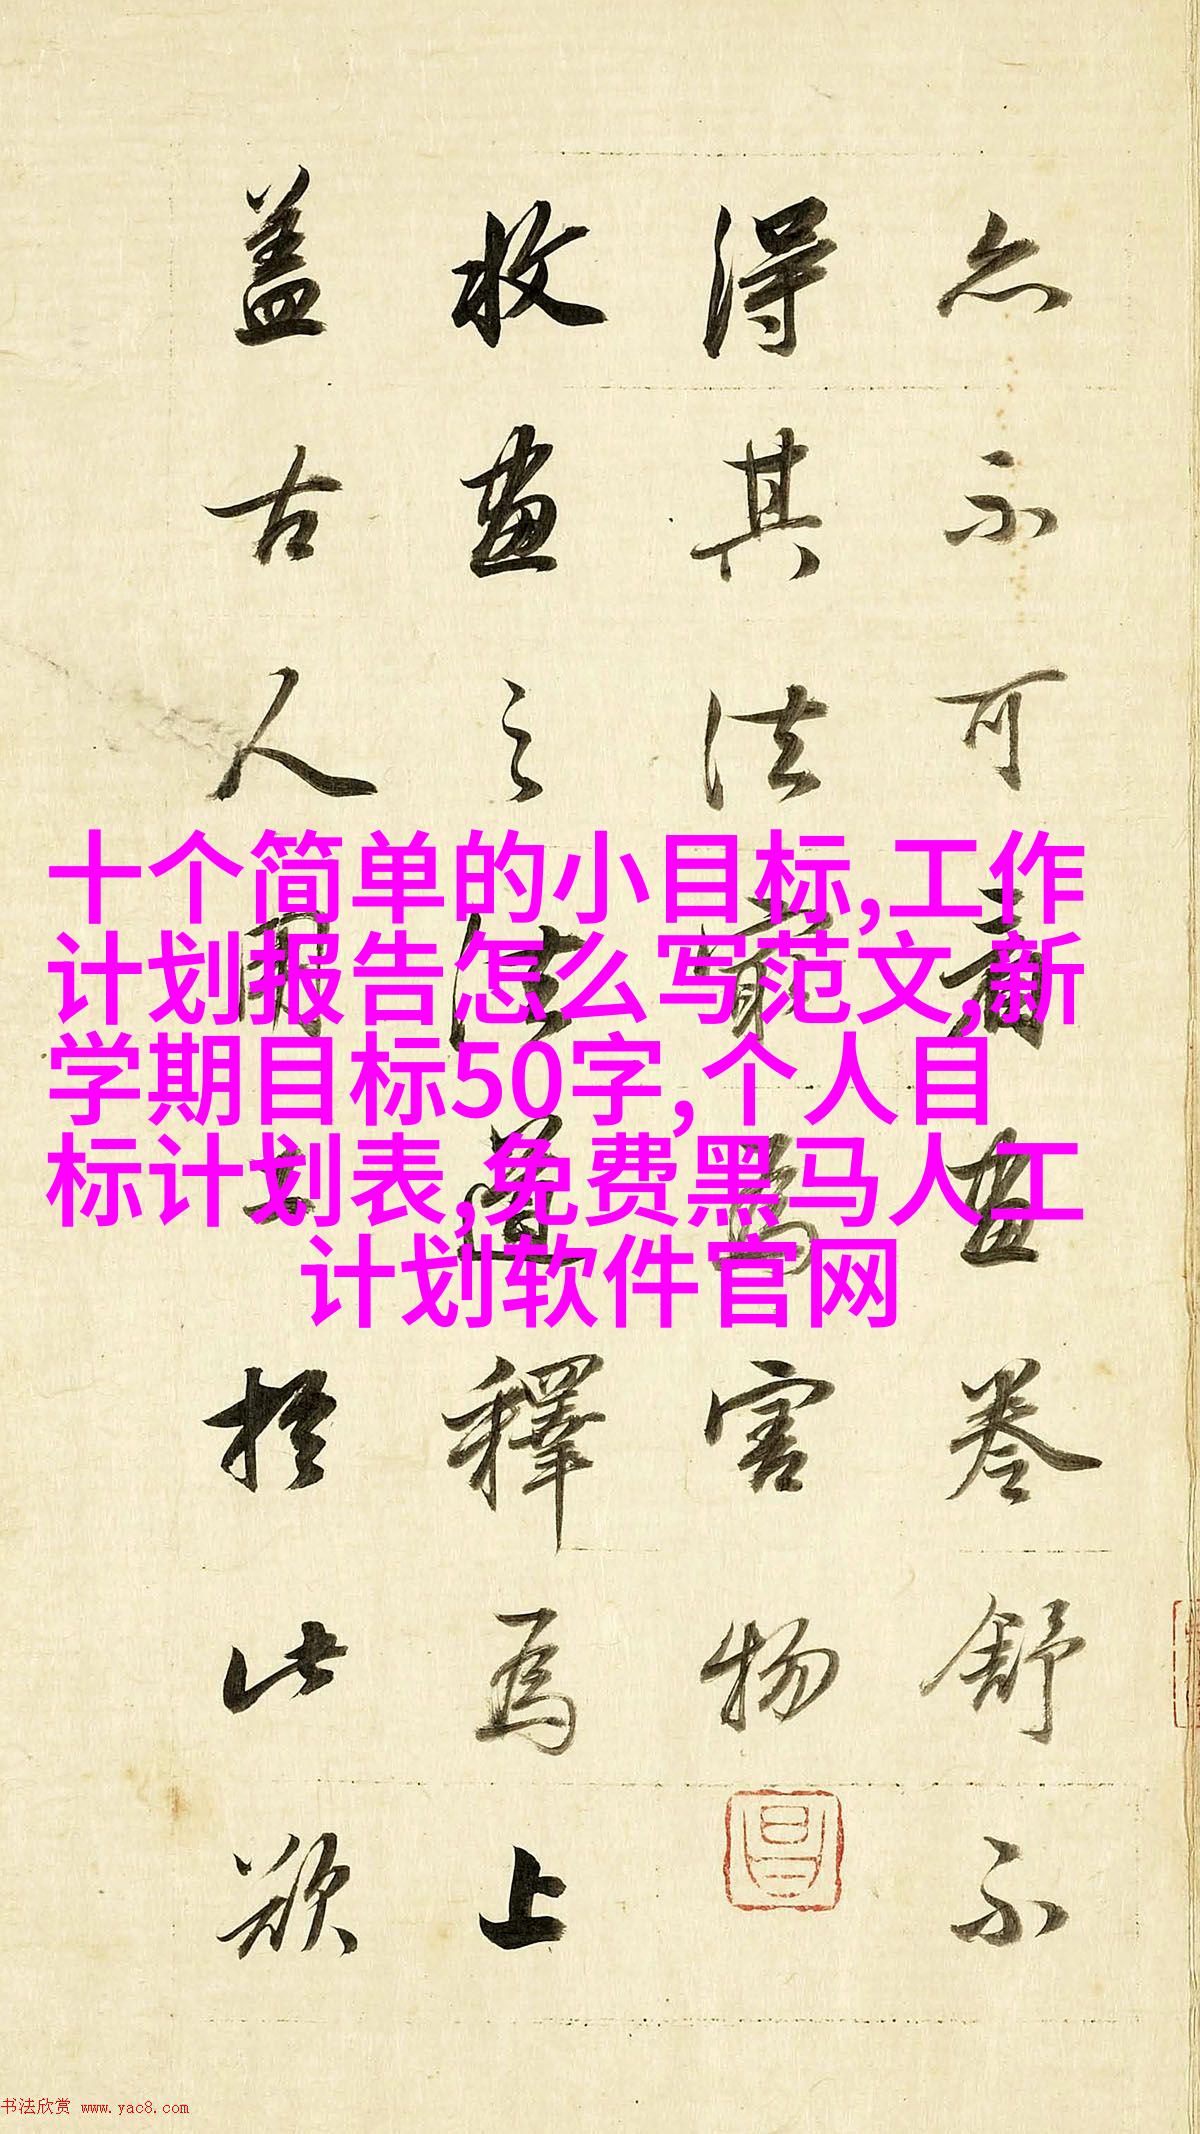 亦不可看畫卷舒不
得其法最為害物
收畫之法道釋為上
蓋古人用工於此欲
十个简单的小目标,工作
计划报告怎么写范文,新
学期目标50字,个人目
标计划表,免费黑马人工
计划软件官网
书法欣赏 www.yac8.com